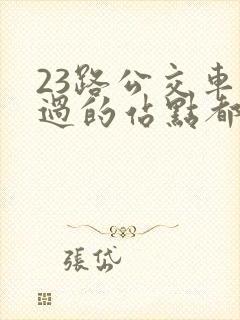 23路公交車
過的佔點都
張岱